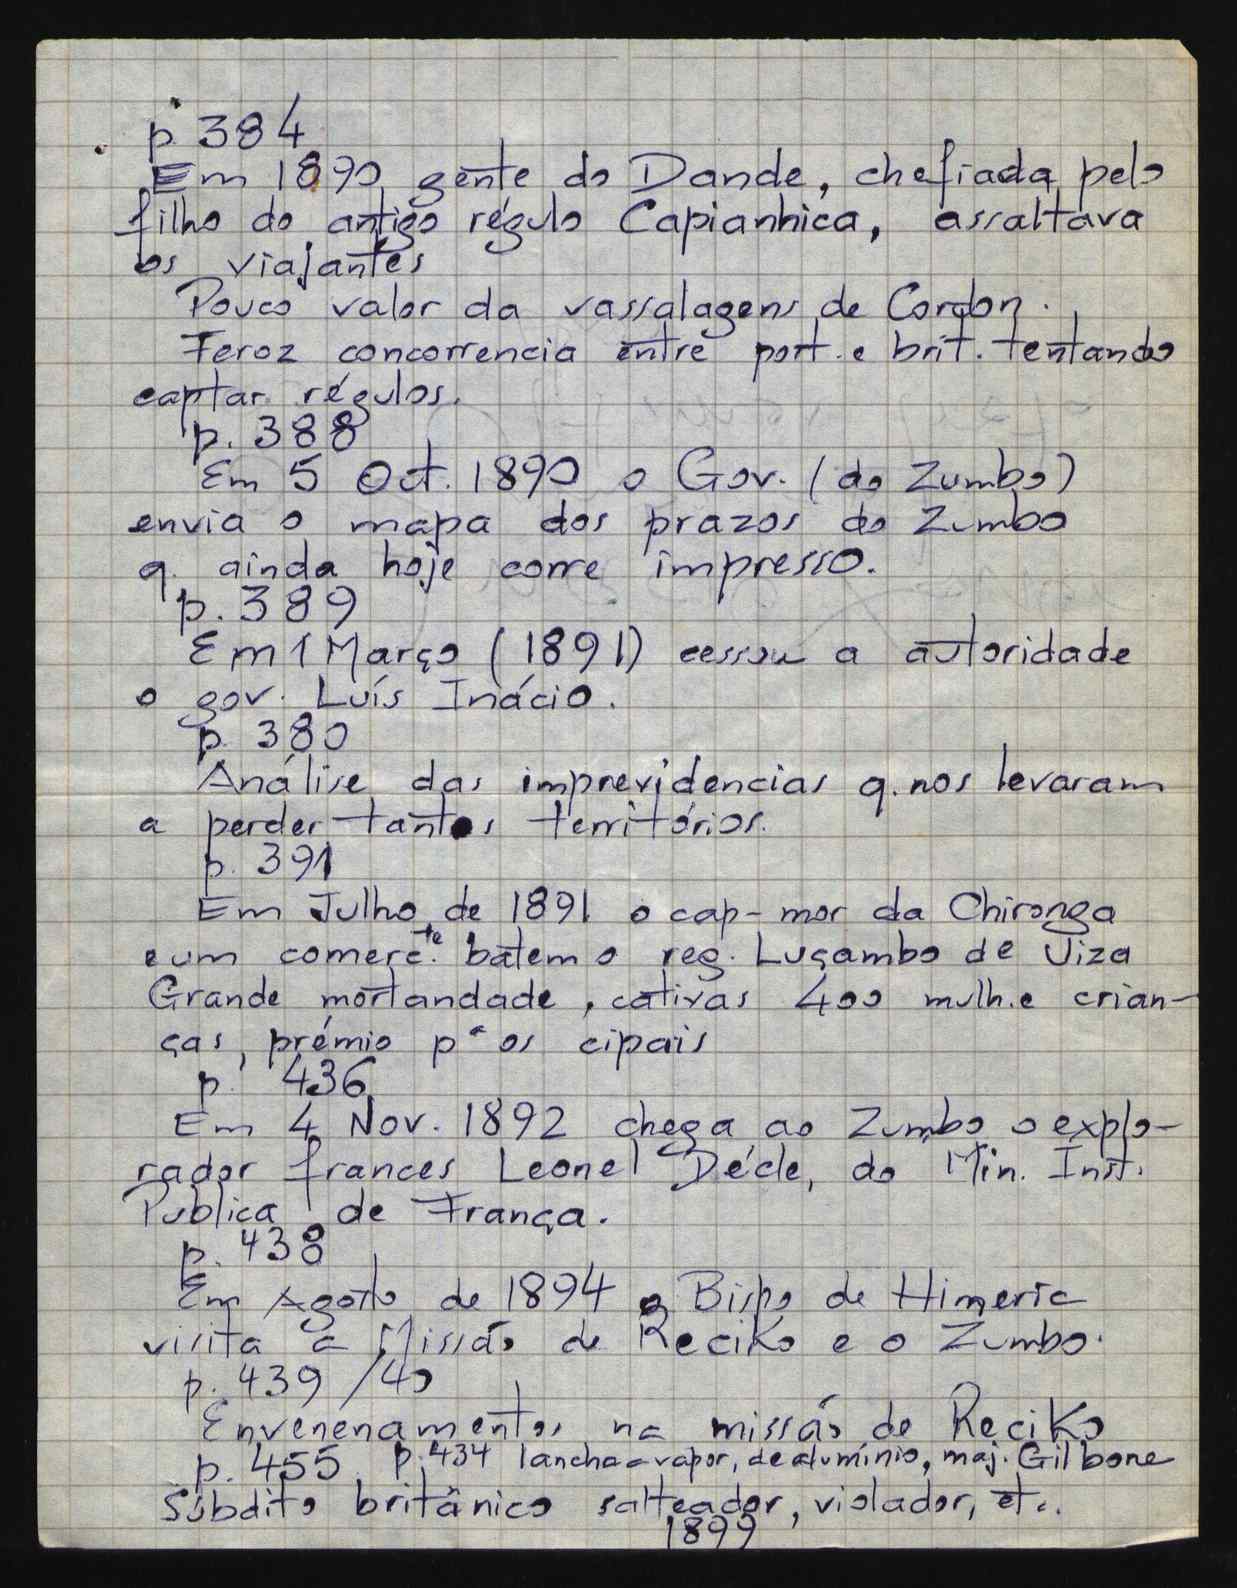 p. 384
Em 1890 gente do Dande, chefiada pelo
filho do antigo régulo Capianhica, assaltava
os viajantes
Pouco valor da vassalagens de Cordon.
Feroz concorrencia entre port. e brit. tentando
captar régulos.
p. 388
Em 5 Oct. 1890 o Gov. (do Zumbo)
envia o mapa dos prazos do Zumbo
q. ainda hoje corre impresso.
p. 389
Em 1 Março (1891) cessou a autoridade
o gov. Luís Inácio.
p. 380
Análise das imprevidencias q. nos levaram
a perder tantos territórios.
p. 391
Em Julho de 1891 o cap-mor da Chironga
e um comerc.te batem o reg. Luçambo de Uiza
Grande mortandade, cativas 400 mulh. e crian-
ças, prémio pª os cipais
p. 436
Em 4 Nov. 1892 chega ao Zumbo o explo-
rador frances Leonel Décle, do Min. Inst.
Publica de França.
p. 438
Em Agosto de 1894 o Bispo de Himeria
visita a Missão de Reciko e o Zumbo.
p. 439/40
Envenenamentos na missão de Reciko
p. 455 p. 434 lancha a vapor, de aluminio, maj. Gilbone
Súbdito britânico salteador, violador, etc.
1899